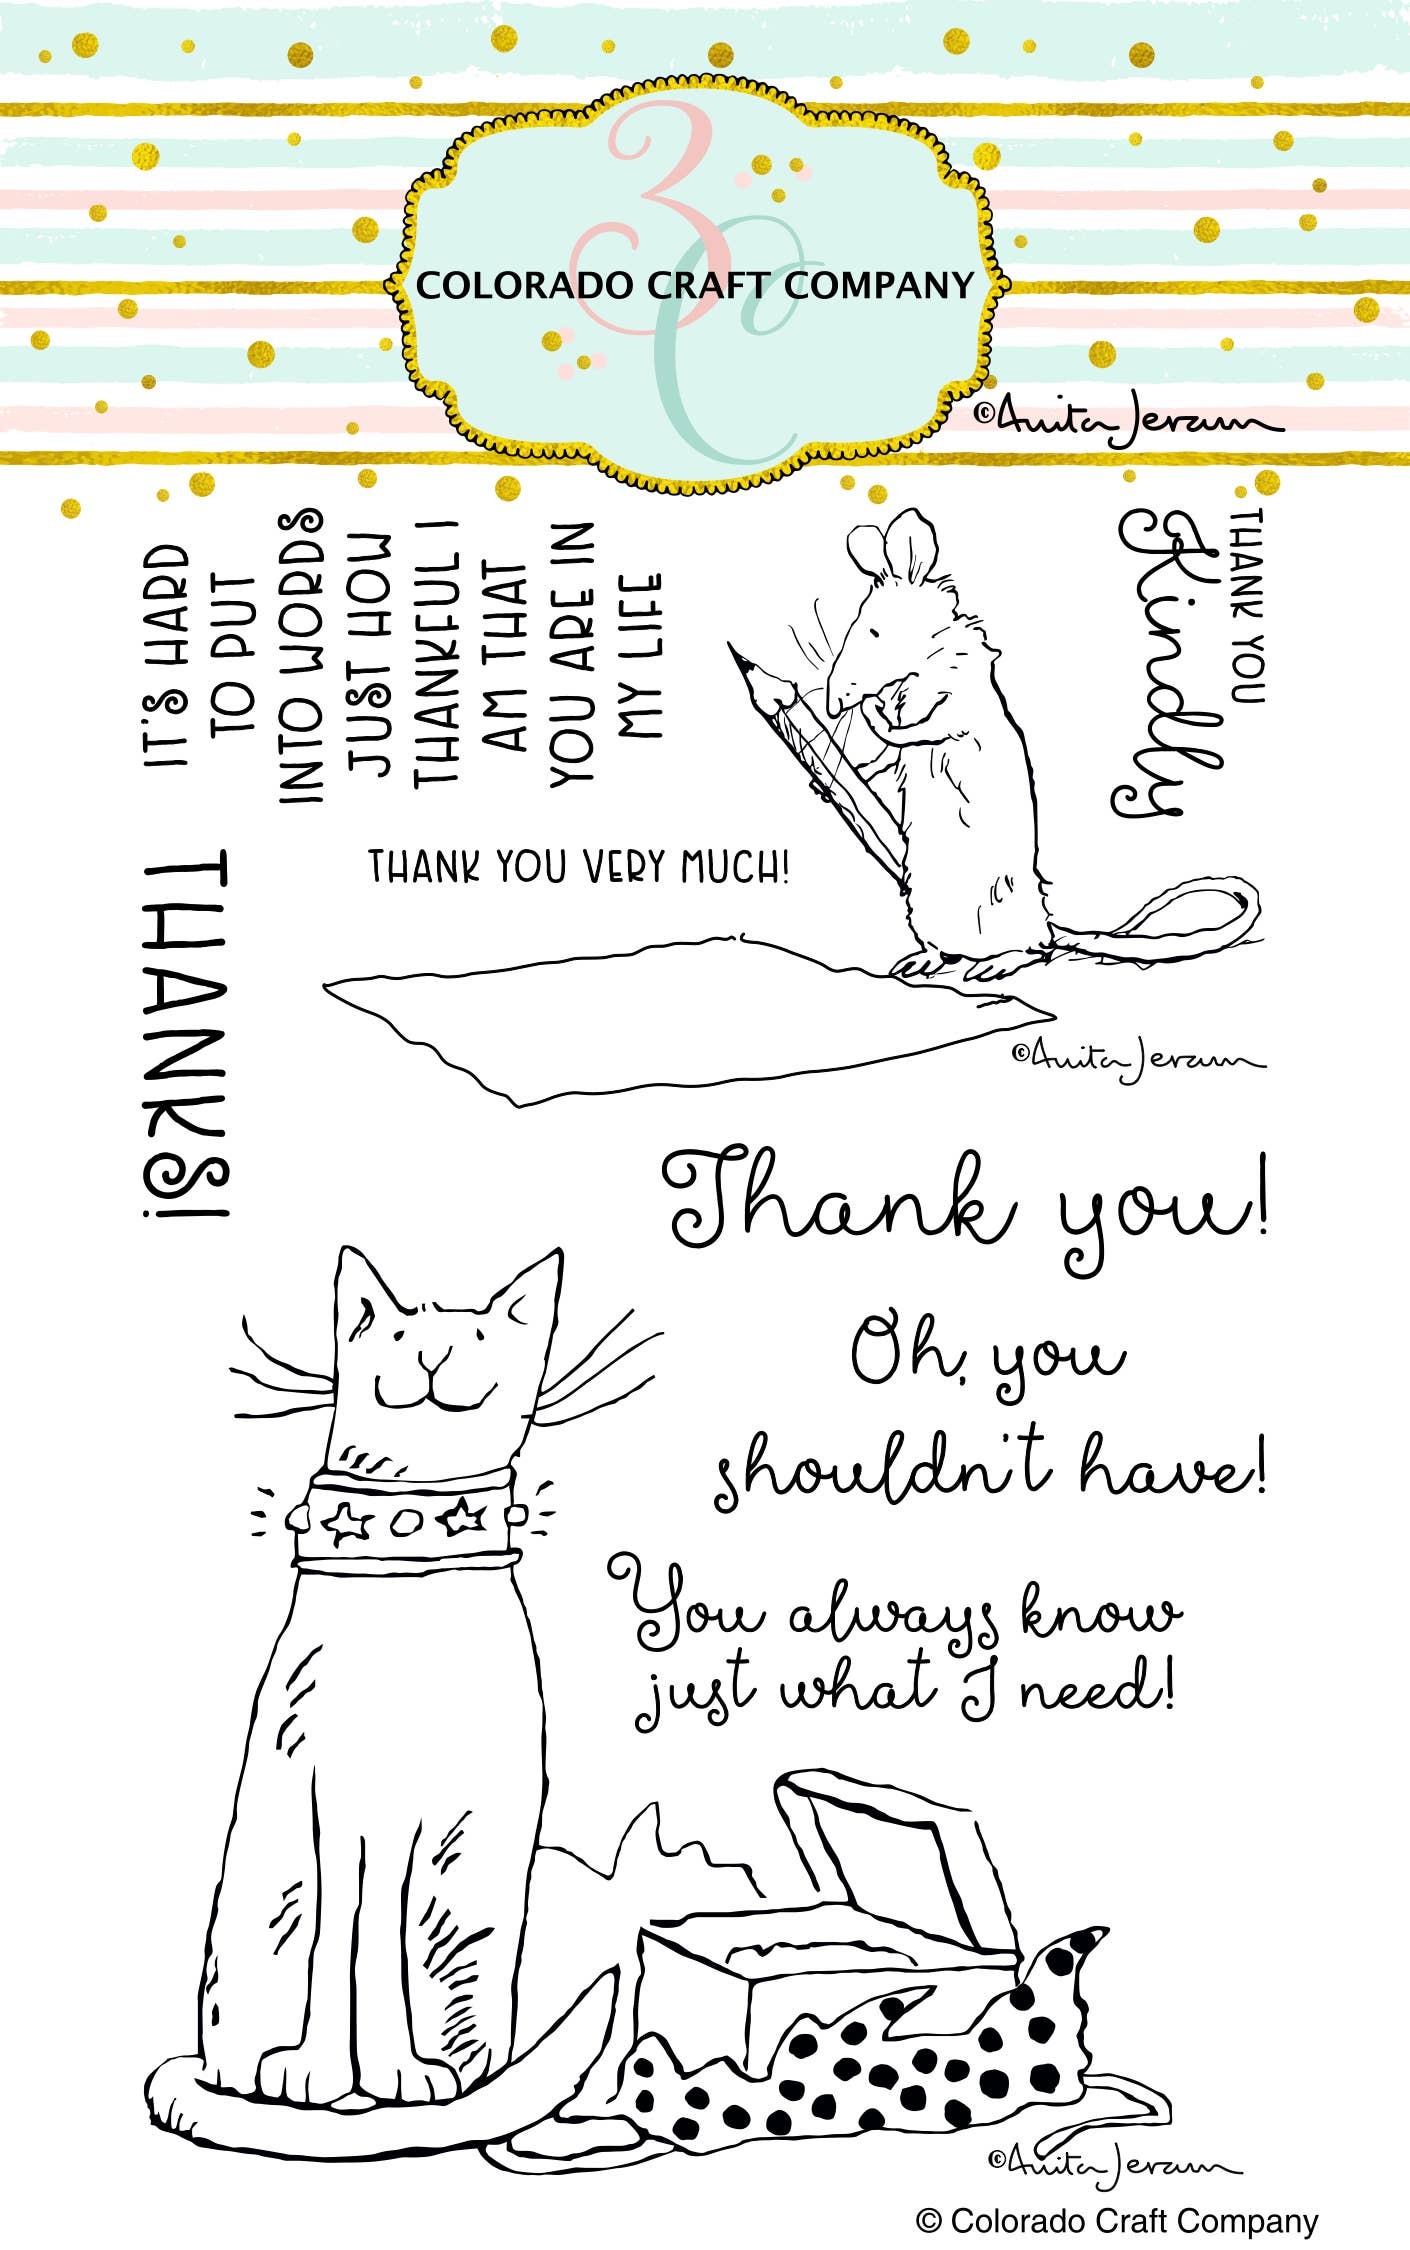 3C
COLORADO CRAFT COMPANY
©Anita Jeram
IT'S HARD
TO PUT
INTO WORDS
JUST HOW
THANKFUL I
AM THAT
YOU ARE IN
MY LIFE
THANK YOU
Kindly
THANK YOU VERY MUCH!
THANKS!
©Anita Jeram
Thank you!
Oh, you
shouldn't have!
You always know
just what I need!
©Anita Jeram
© Colorado Craft Company